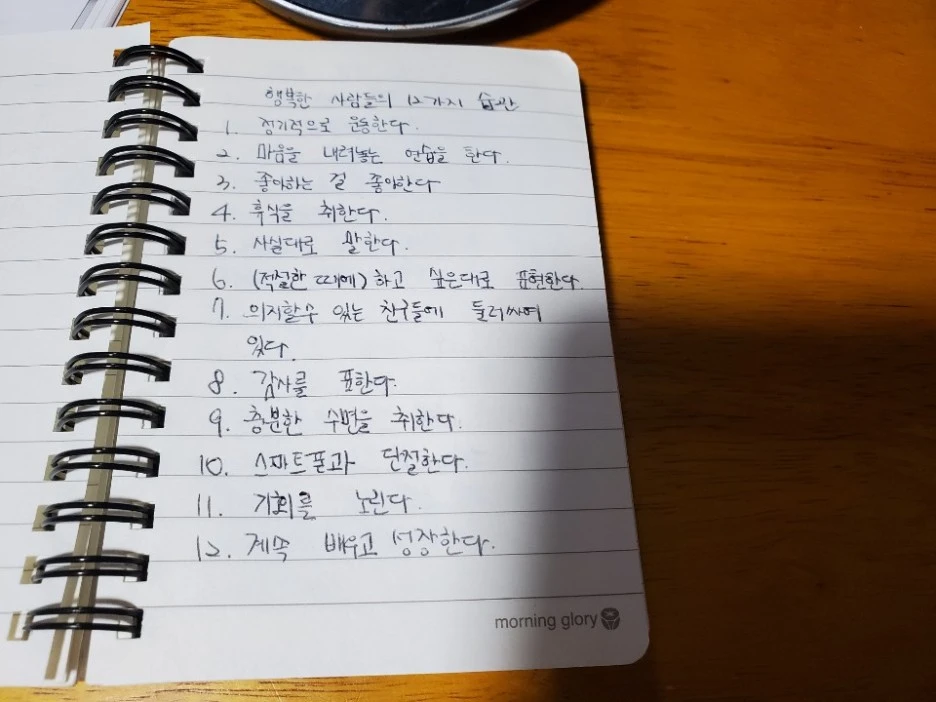 행복한 사람들의 12가지 습관
1. 정기적으로 운동한다.
2. 마음을 내려놓는 연습을 한다.
3. 좋아하는 걸 좋아한다
4. 휴식을 취한다.
5. 사실대로 말한다.
6. (적절한 때에) 하고 싶은대로 표현한다.
7. 의지할수 있는 친구들에 둘러싸여
있다.
8. 감사를 표한다.
9. 충분한 수면을 취한다.
10. 스마트폰과 단절한다.
11. 기회를 노린다.
12. 계속 배우고 성장한다.
morning glory